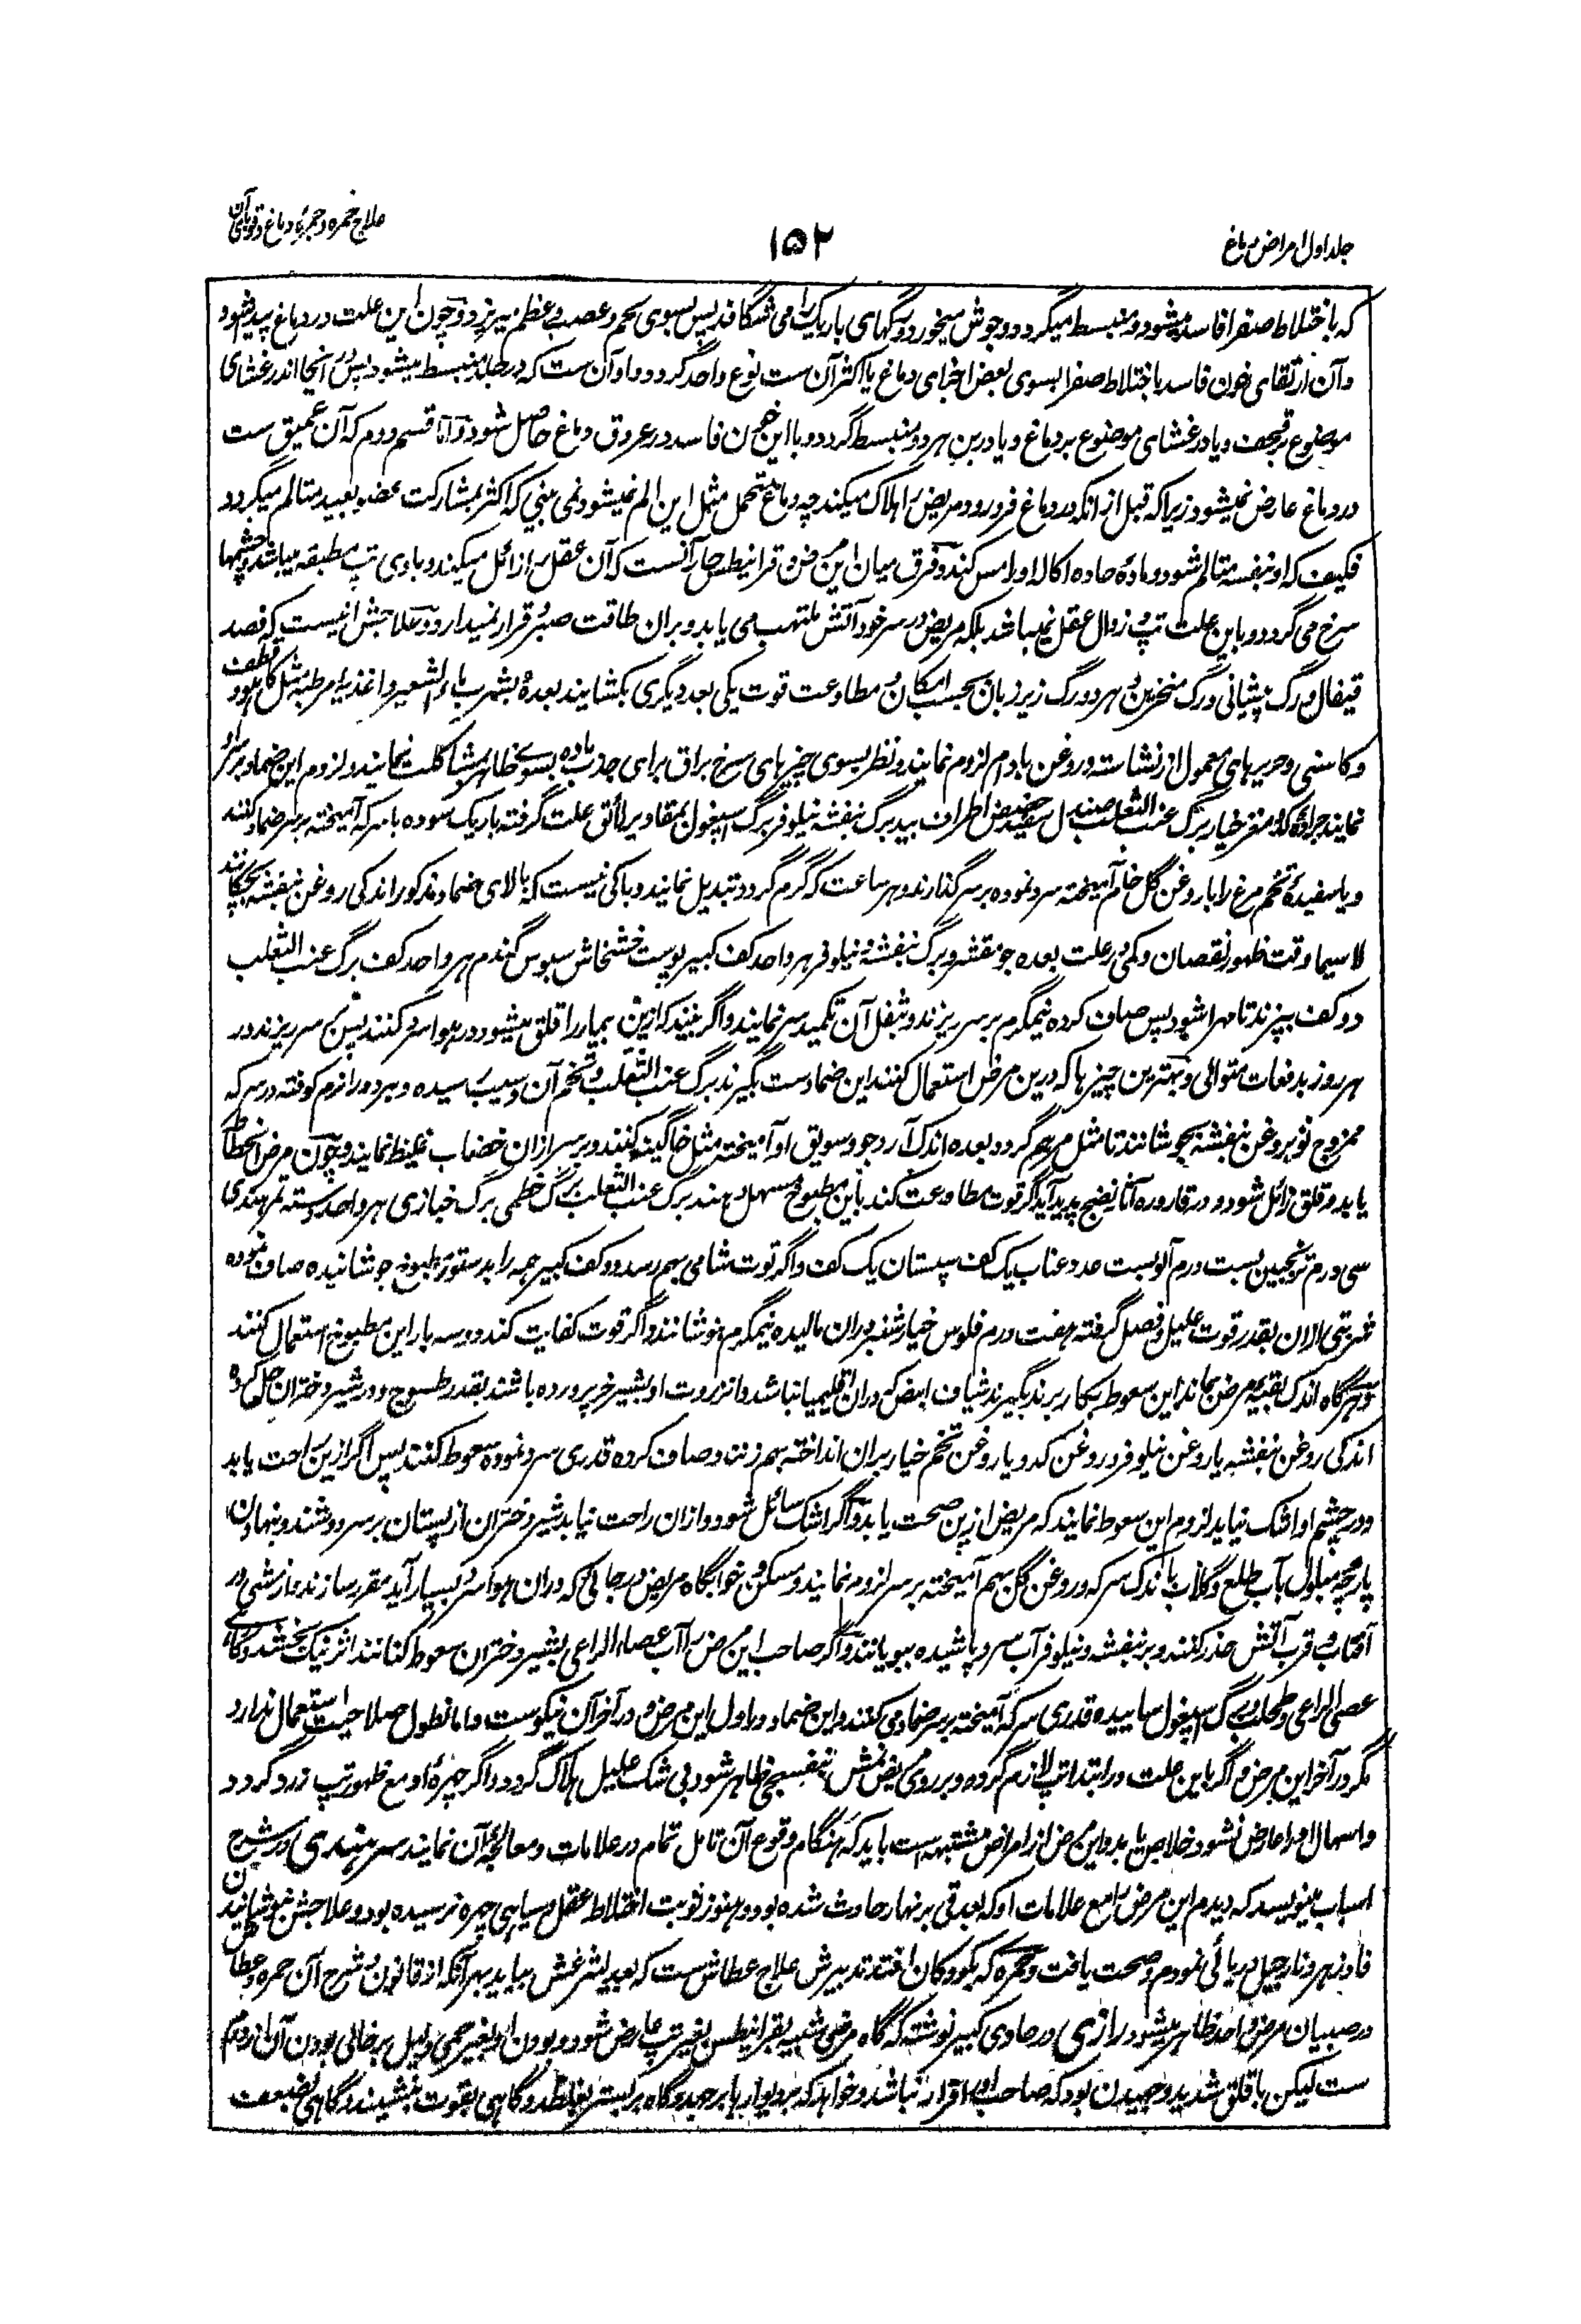 جلد اول امراض دماغ
۱۵۲
علاج خمره و جمرهٔ دماغ و قوبای آن
که باختلاط صفرا فاسد میشود و منبسط میگردد و جوش میخورد و رگهای باریک را می شگافد پس بسوی لحم و عصب و عظم میریزد و چون این علت در دماغ پیدا شود
و آن ارتقای خون فاسد باختلاط صفرا بسوی بعض اجزای دماغ یا اکثر آن ست نوع واحد گردد و آن ست که در جلد منبسط میشود پس در انجا اندر غشای
موضوع بر قحف و یا در غشای موضوع بر دماغ و یا درین هر دو منبسط گردد و با این خون فاسد در عروق دماغ حاصل شود و اما قسم دوم که آن عمیق ست
در دماغ عارض نمیشود زیرا که قبل از انکه در دماغ فرو رود مریض را هلاک میکند چه دماغ متحمل مثل این الم نمیشود نمی بینی که اکثر بمشارکت عضو بعید متالم میگردد
فکیف که او بنفسه متالم شود و مادهٔ حاده اکاله او را مس کند و فرق میان این مرض و قرانیطس حار آنست که آن عقل را زائل میکند و با وی تپ مطبقه میباشد و چشمها
سرخ می گردد و باین علت تپ و زوال عقل نمیباشد بلکه مریض در سر خود آتش ملتهب می یابد و بران طاقت صبر و قرار نمیدارد و علاجش اینست که فصد
قیفال و رگ پیشانی و رگ منخرین و هر دو رگ زیر زبان بحسب امکان و مطاوعت قوت یکی بعد دیگری بکشایند بعدهٔ بشرب ماء الشعیر و اغذیهٔ مرطبه مثل کاهو و قطف
و کاسنی و حریرهای معمول از نشاسته و روغن بادام لزوم نمایند و نظر بسوی چیزهای سرخ براق برای جذب ماده بسوی ظاهر بمشاکلت نمایند و لزوم این ضماد بر سر او
نمایند جرادهٔ کدو مغز خیار برگ عنب الثعلب صندل سفید حضض اطراف بید برگ بنفشه نیلوفر برگ اسپغول بمقادیر لائق علت گرفته باریک سوده با سرکه آمیخته بر سر ضماد کنند
و یا سفیدهٔ تخم مرغ را با روغن گل خام آمیخته سرد نموده بر سر گذارند و هر ساعت که گرم گردد تبدیل نمایند و باکی نیست که بالای ضماد مذکور اندکی روغن بنفشه بچکانند
لا سیما وقت ظهور نقصان و کمی در علت بعده جو مقشر و برگ بنفشه و نیلوفر هر واحد کف کبیر پوست خشخاش سبوس گندم هر واحد کف برگ عنب الثعلب
دو کف بپزند تا مهرا شود پس صاف کرده نیمگرم بر سر ریزند و بثفل آن تکمید سر نمایند و اگر بینند که ازین بیمار را قلق میشود در هوا سرد کنند پس بر سر ریزند در
هر روز بدفعات متوالی و بهترین چیزها که درین مرض استعمال کنند این ضماد ست بگیرند برگ عنب الثعلب و تخم آن و سیب رسیده و هر دو را نرم کوفته در سرکه
ممزوج بروغن بنفشه بجوشانند تا مثل مرهم گردد بعده اندک آرد جو و سویق او آمیخته مثل خاگینه کنند و بر سر ازان خضاب غلیظ نمایند و چون مرض انحطاط
یابد و قلق زائل شود و در قاروره آثار نضج پدید آید اگر قوت مطاوعت کند باین مطبوخ مسهل دهند برگ عنب الثعلب برگ خطمی برگ خبازی هر واحد دسته تمر هندی
سی درم ترنجبین بست درم آلو بست عدد عناب یک کف سپستان یک کف و اگر توت شامی بهم رسد دو کف کبیر همه را بدستور مطبوخ جوشانیده صاف نموده
شربتی ازان بقدر قوت علیل و فصل گرفته هفت درم فلوس خیارشنبر دران مالیده نیمگرم بنوشانند و اگر قوت کفایت کند دو سه بار این مطبوخ استعمال کنند
و هرگاه اندک بقیهٔ مرض بماند این سعوط بکار برند بگیرند شیاف ابیض که دران اقلیمیا نباشد و انزروت او بشیر خر پرورده باشند بقدر طسوج و در شیر دختران حل کرده
اندکی روغن بنفشه یا روغن نیلوفر و روغن کدو یا روغن تخم خیار بران انداخته بهم زنند و صاف کرده قدری سرد نموده سعوط کنند پس اگر ازین راحت یابد
و در چشم او اشک نیاید لزوم این سعوط نمایند که مریض ازین صحت یابد و اگر اشک سائل شود و ازان راحت نیابد شیر دختران از پستان بر سر دوشند و بنهادن
پارچه مبلول بآب طلع و گلاب با اندک سرکه و روغن گل بهم آمیخته بر سر لزوم نمایند و سکون و خوابگاه مریض در جائی که دران هوا سرد بسیار آید مقرر سازند و از مشی در
آفتاب و قرب آتش حذر کنند و بر بنفشه و نیلوفر آب سرد پاشیده ببویانند و اگر صاحب این مرض را آب عصاء الراعی بشیر دختران سعوط کنانند اثر نیک بخشد و گاهی
عصی الراعی و طحلب و برگ اسپغول ساییده قدری سرکه آمیخته بر سر ضماد می کنند و این ضماد در اول این مرض و در آخر آن نیکوست و اما نطول صلاحیت استعمال ندارد
مگر در آخر این مرض و اگر باین علت در ابتدا تپ لازم گردد و بر روی مریض نمش بنفسجی ظاهر شود بی شک علیل هلاک گردد و اگر چهرهٔ او مع ظهور تپ زرد گردد
و اسهال او را عارض نشود خلاص یابد و این مرض از امراض مشتبهه ست باید که هنگام وقوع آن تامل تمام در علامات و معالجهٔ آن نمایند سرهندی در شرح
اسباب مینویسد که دیدم این مرض را مع علامات او که بعد قی بر نهار حادث شده بود و هنوز نوبت اختلاط عقل و سیاهی چهره نرسیده بود و علاجش بنوشانیدن
فادزهر و نارجیل دریائی نمودم و صحت یافت و حمره که بکودکان افتد تدبیرش علاج عطاش ست که بعد لشرغش بیاید بهر آنکه از قانون و شرح آن حمره و عطاش
در صبیان مرض واحد ظاهر میشود رازی در حاوی کبیر نوشته که گاه مرضی شبیه بقرانیطس بغیر تپ عارض شود و بودن او بغیر حمی دلیل بر خالی بودن آن از ورم
ست لیکن با قلق شدید و جهیدن بود که صاحب او را قرار نباشد و خواهد که بر دیوار برجهد و گاه بر بستر بغلطد و گاهی بقوت بنشیند و گاهی بضعف